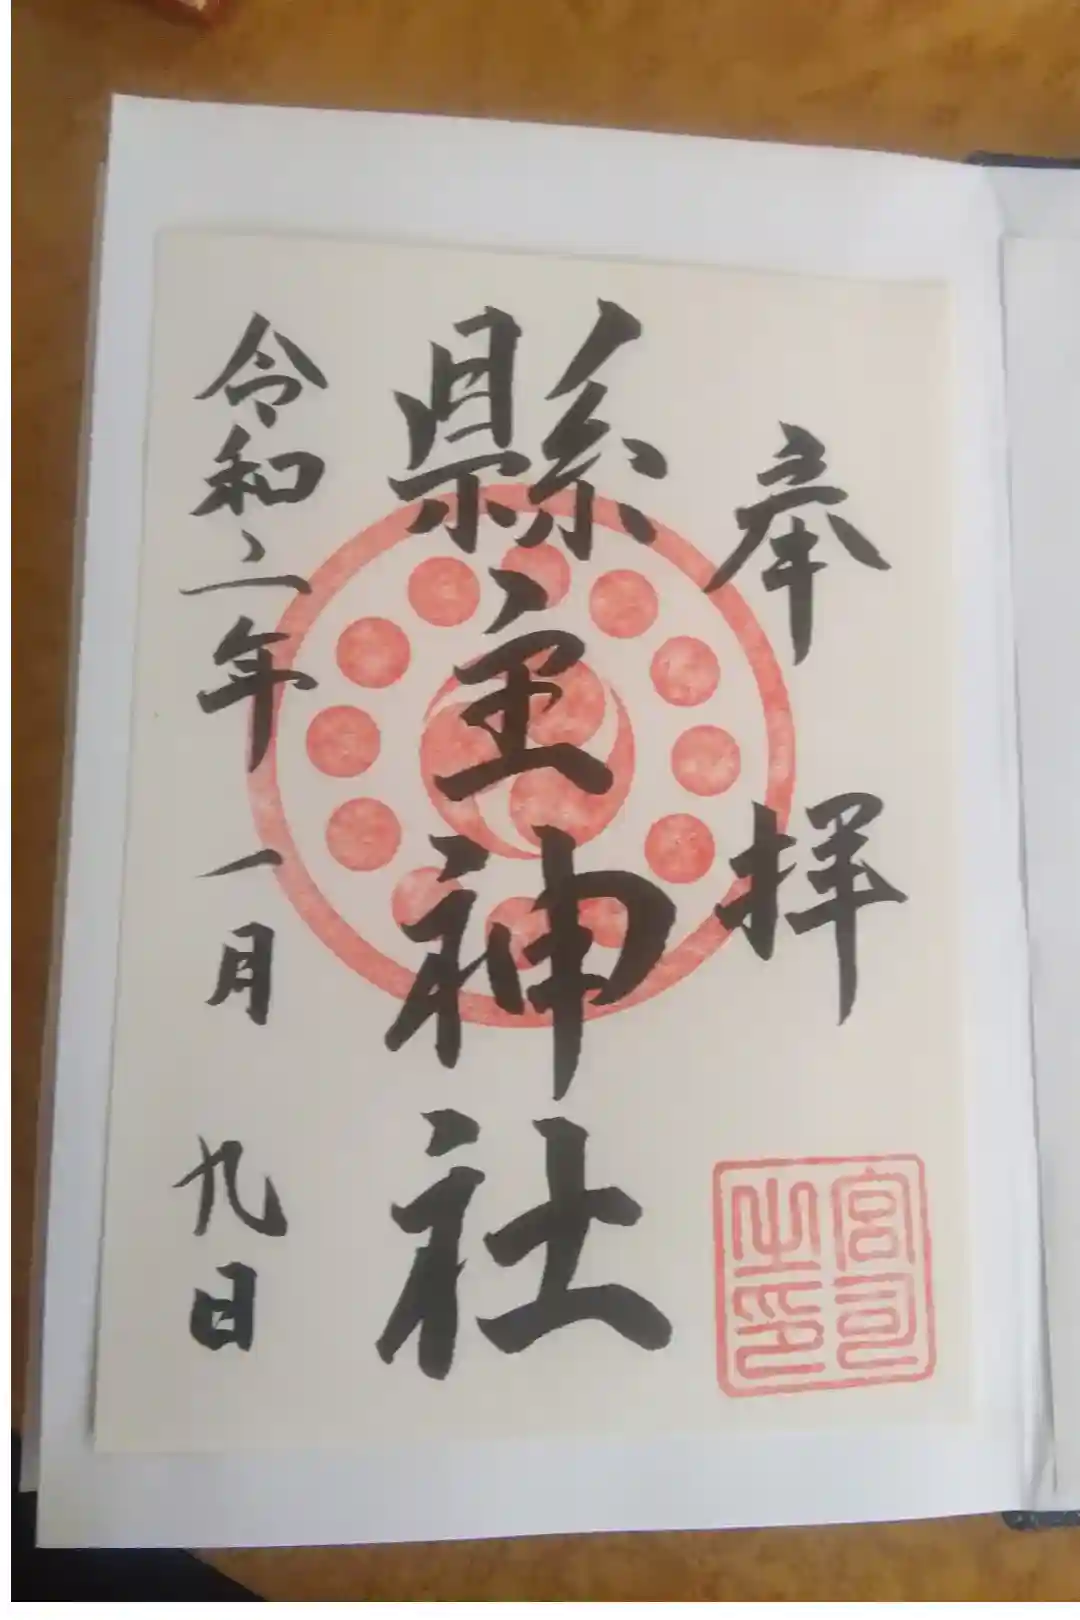 奉拝
宮司
之印
縣主神社
令和二年一月九日